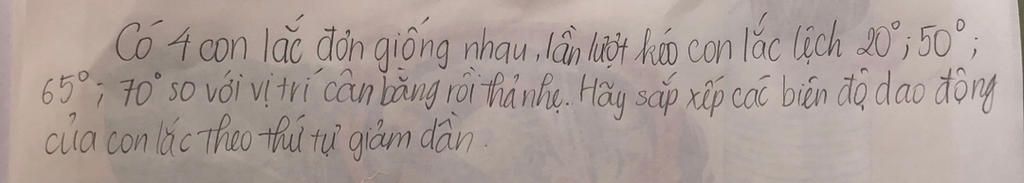 Có 4 con lắc đơn giống nhau, lần lượt kéo con lắc lệch 20°; 50°;
65°; 70° so với vị trí cân bằng rồi thả nhẹ. Hãy sắp xếp các biên độ dao động
của con lắc theo thứ tự giảm dần.